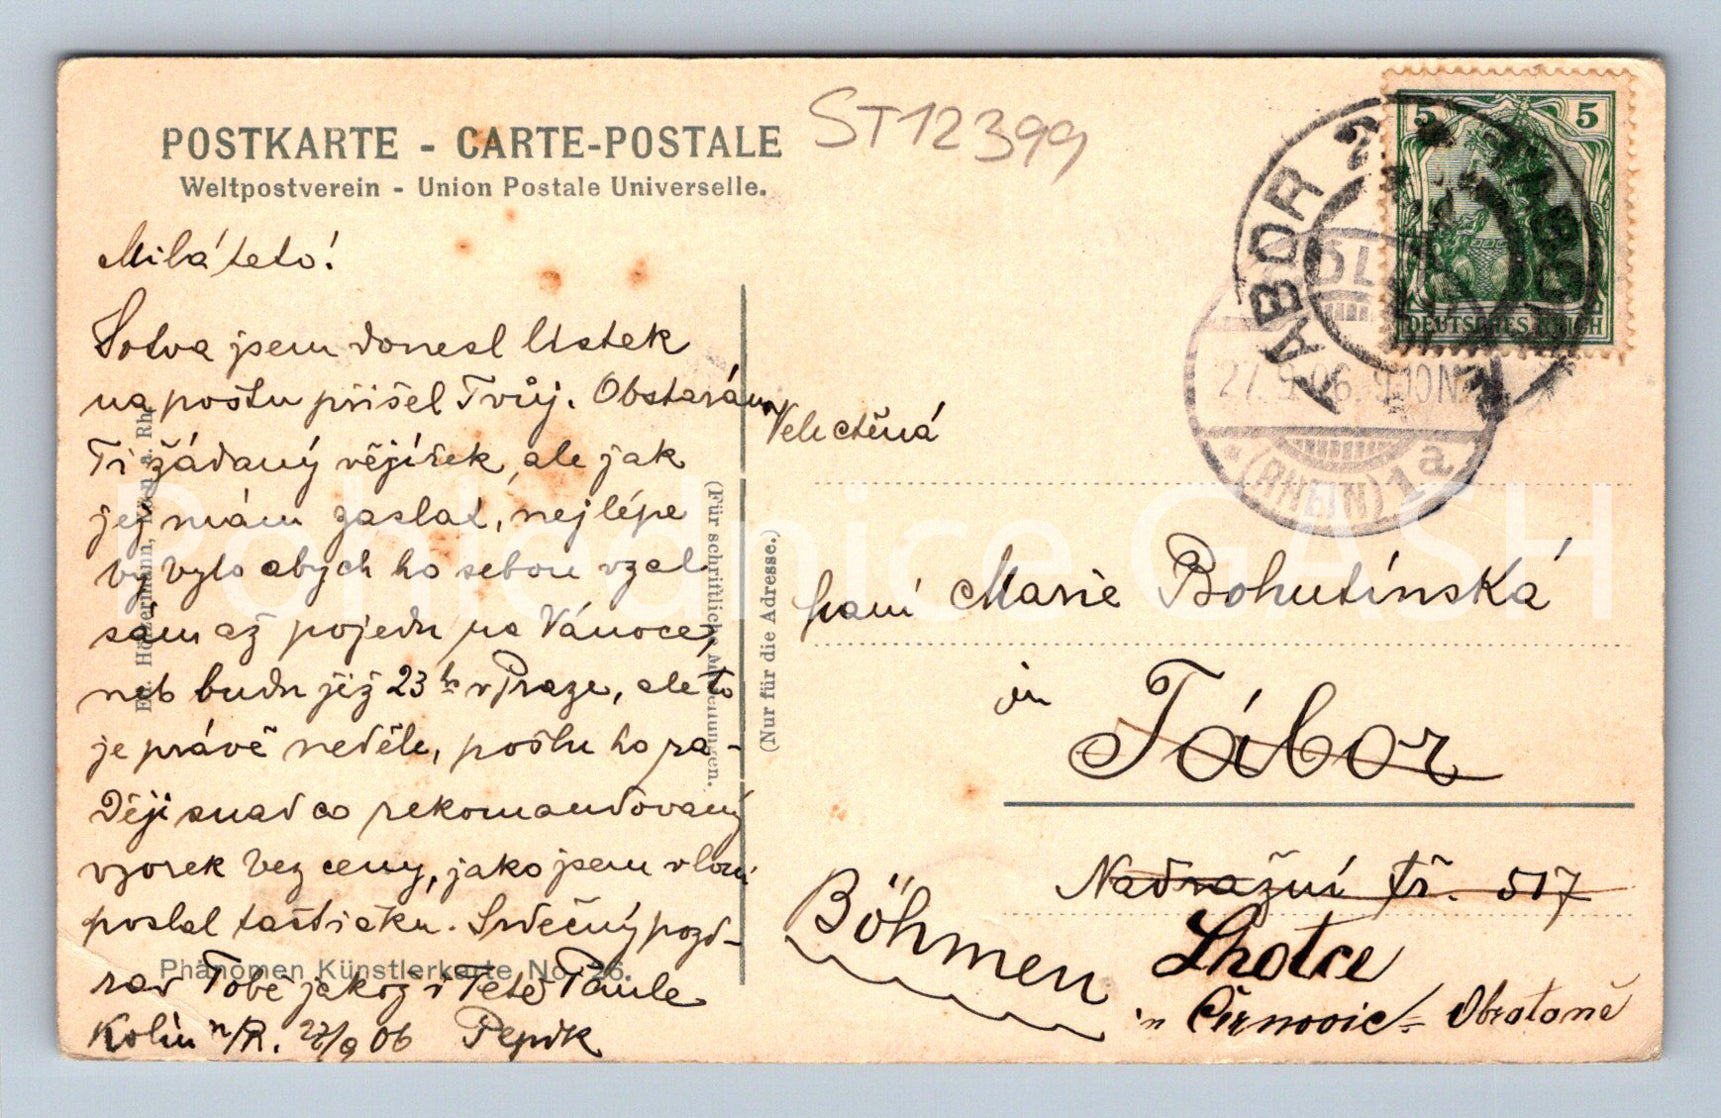 POSTKARTE - CARTE-POSTALE
Weltpostverein - Union Postale Universelle.
ST12399
Milá teto!
Sotva jsem donesl lístek
na poštu přišel Tvůj. Obstarám
Ti žádaný vějířek, ale jak
jej mám zaslat, nejlépe
by bylo abych ho sebou vzal
sám až pojedu na Vánoce,
neb budu již 23ho v Praze, ale to
je právě neděle, pošlu ho ra-
ději snad co rekomandovaný
vzorek bez ceny, jako jsem vloni
poslal taštičku. Srdečný pozd-
rav Tobě jakož i Tetě Paule
Kolín n/R. 27/9 06 Pepík
Phänomen Künstlerkarte No. 26.
(Für schriftliche Mitteilungen.
(Nur für die Adresse.)
Velectěná
paní Marie Bohutínská
in
Tábor
Nadražní tř. 517
Böhmen
Lhotce
Obrataně
5 5
DEUTSCHES REICH
TABOR TABOR
27.9.06. 9-10N
(RHEIN) 1a
Pohlednice GASH